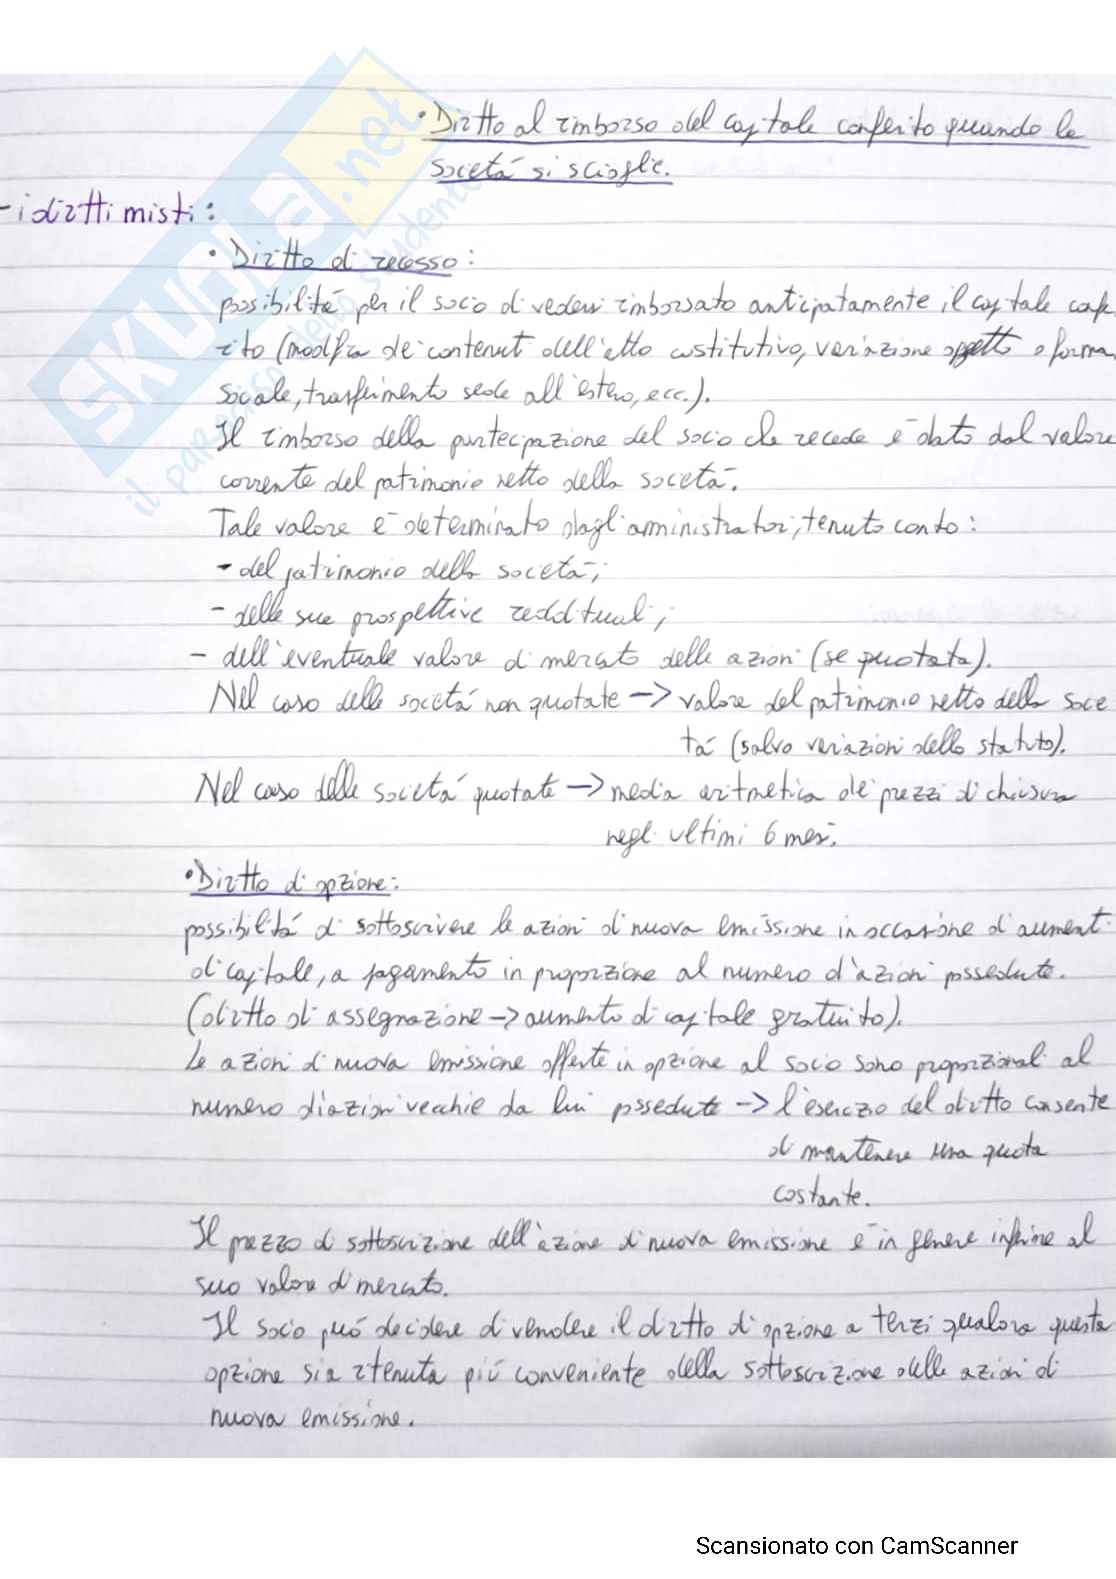 • Diritto al rimborso del capitale conferito quando la
società si scioglie.
- i diritti misti:
• Diritto di recesso:
possibilità per il socio di vedersi rimborsato anticipatamente il capitale confe
rito (modifica dei contenuti dell'atto costitutivo, variazione oggetto o forma
sociale, trasferimento sede all'estero, ecc.).
Il rimborso della partecipazione del socio che recede è dato dal valore
corrente del patrimonio netto della società.
Tale valore è determinato dagli amministratori, tenuto conto:
- del patrimonio della società;
- delle sue prospettive reddituali;
- dell'eventuale valore di mercato delle azioni (se quotata).
Nel caso delle società non quotate -> valore del patrimonio netto della socie
tà (salvo variazioni dello statuto).
Nel caso delle società quotate -> media aritmetica dei prezzi di chiusura
negli ultimi 6 mesi.
• Diritto di opzione:
possibilità di sottoscrivere le azioni di nuova emissione in occasione di aumenti
di capitale, a pagamento in proporzione al numero di azioni possedute.
(diritto di assegnazione -> aumento di capitale gratuito).
Le azioni di nuova emissione offerte in opzione al socio sono proporzionali al
numero di azioni vecchie da lui possedute -> l'esercizio del diritto consente
di mantenere una quota
costante.
Il prezzo di sottoscrizione dell'azione di nuova emissione è in genere inferiore al
suo valore di mercato.
Il socio può decidere di vendere il diritto di opzione a terzi qualora questa
opzione sia ritenuta più conveniente della sottoscrizione delle azioni di
nuova emissione.
SKUOLA.net
il paradiso dello studente
Scansionato con CamScanner